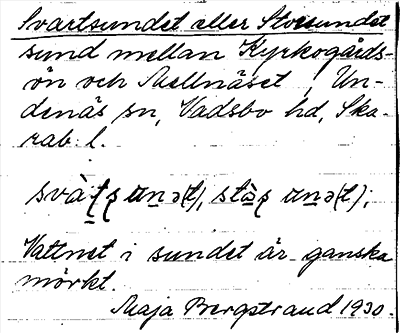 Svartsundet eller Storsundet
sund mellan Kyrkogårds-
ön och Mellnäset, Un-
denäs sn, Vadsbo hd, Ska-
rab. l.
Vattnet i sundet är ganska
mörkt.
Maja Bergstrand 1930.